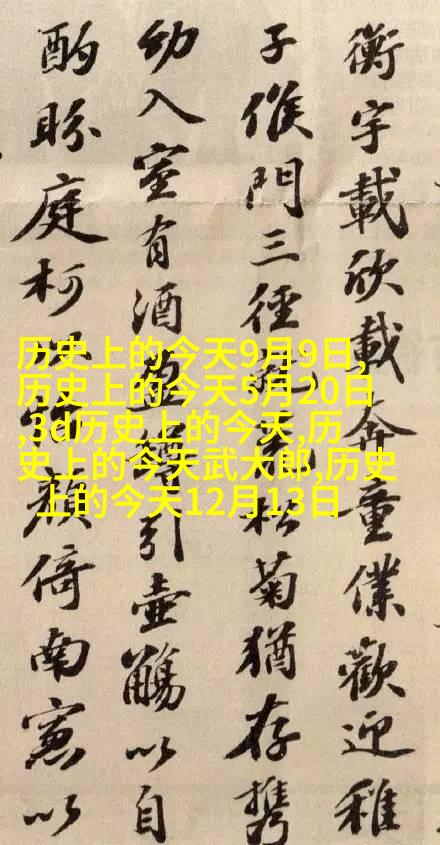 衡宇載欣載奔童僕歡迎稚
子候門三徑松菊猶存携
幼入室有酒盈引壺觴以自
酌眄庭柯顏倚南窓以
历史上的今天9月9日,
历史上的今天5月20日
,3d历史上的今天,历
史上的今天武大郎,历史
上的今天12月13日